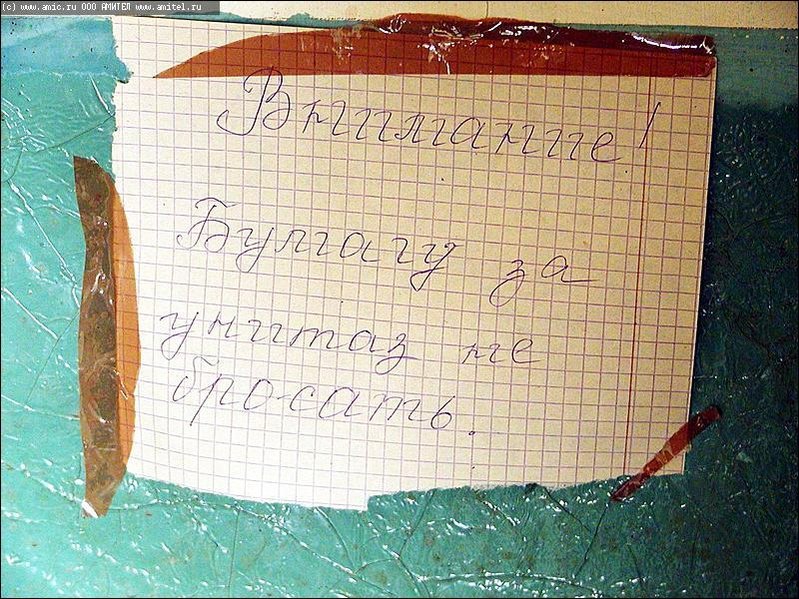 (c) www.amic.ru ООО АМИТЕЛ www.amitel.ru
Внимание!
Бумагу за
унитаз не
бросать.